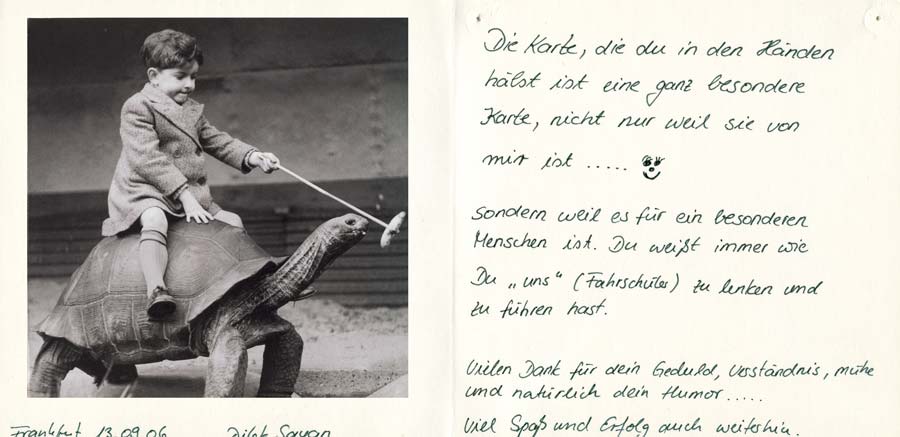 Die Karte, die du in den Händen
hälst ist eine ganz besondere
Karte, nicht nur weil sie von
mir ist .....
sondern weil es für ein besonderen
Menschen ist. Du weißt immer wie
Du „uns“ (Fahrschüler) zu lenken und
zu führen hast.
Vielen Dank für dein Geduld, Verständnis, mühe
und natürlich dein Humor.....
Viel Spaß und Erfolg auch weiterhin.
Frankfurt 13.09.06